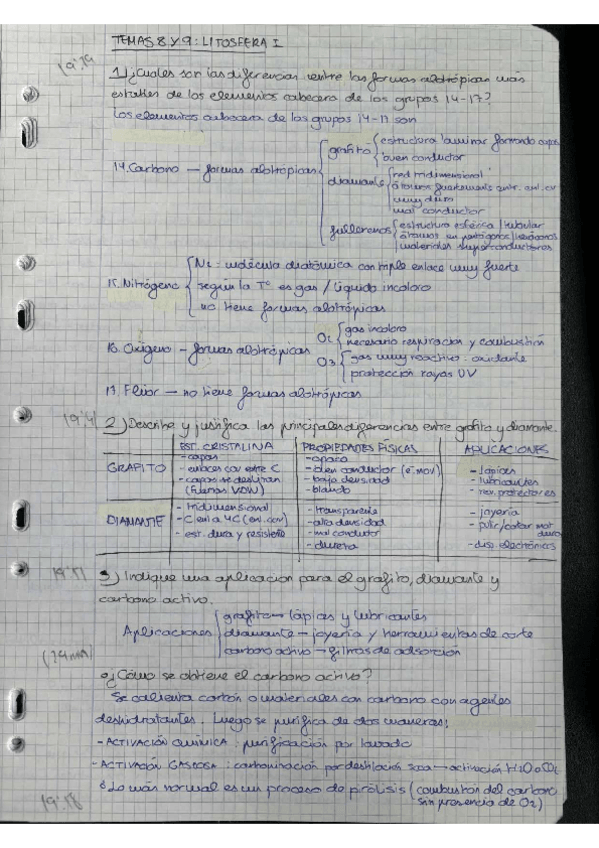 TEMAS 8 Y 9: LITOSFERA I
19'19
1) ¿Cuáles son las diferencias entre las formas alotrópicas más
estables de los elementos cabecera de los grupos 14-17?
Los elementos cabecera de los grupos 14-17 son
14. Carbono — formas alotrópicas
grafito
estructura laminar formando capas
buen conductor
diamante
red tridimensional
átomos fuertemente
muy dura
mal conductor
fullerenos
estructura esférica / tubular
átomos en pentágonos / hexágonos
materiales superconductores
15. Nitrógeno
N₂: molécula diatómica con triple enlace muy fuerte
según la Tº es gas / líquido incoloro
no tiene formas alotrópicas
16. Oxígeno — formas alotrópicas
O₂
gas incoloro
necesario respiración y combustión
O₃
gas muy reactivo: oxidante
protección rayos UV
17. Flúor — no tiene formas alotrópicas
2) Describe y justifica las principales diferencias entre grafito y diamante.
EST. CRISTALINA PROPIEDADES FÍSICAS APLICACIONES
GRAFITO
- capas
- enlaces cov entre C
- capas se deslizan
(fuerzas VDW)
- opaco
- buen conductor (e⁻ mov)
- baja densidad
- blando
- lápices
- lubricantes
- rev. protectores
DIAMANTE
- tridimensional
- C en a 4C (en. cov)
- est. dura y resistente
- transparente
- alta densidad
- mal conductor
- dureza
- joyería
- pulir/cortar mat
duros
- disp. electrónicos
19'17
3) Indique una aplicación para el grafito, diamante y
carbono activo.
Aplicaciones
grafito → lápices y lubricantes
diamante → joyería y herramientas de corte
carbono activo → filtros de adsorción
¿Cómo se obtiene el carbono activo?
Se calienta carbón o materiales con carbono con agentes
deshidratantes. Luego se purifica de dos maneras:
- ACTIVACIÓN QUÍMICA: purificación por lavado
- ACTIVACIÓN GASEOSA: carbonización por destilación seca → activación H₂O o CO₂
19'18
Lo más normal es un proceso de pirólisis (combustión del carbono
sin presencia de O₂)